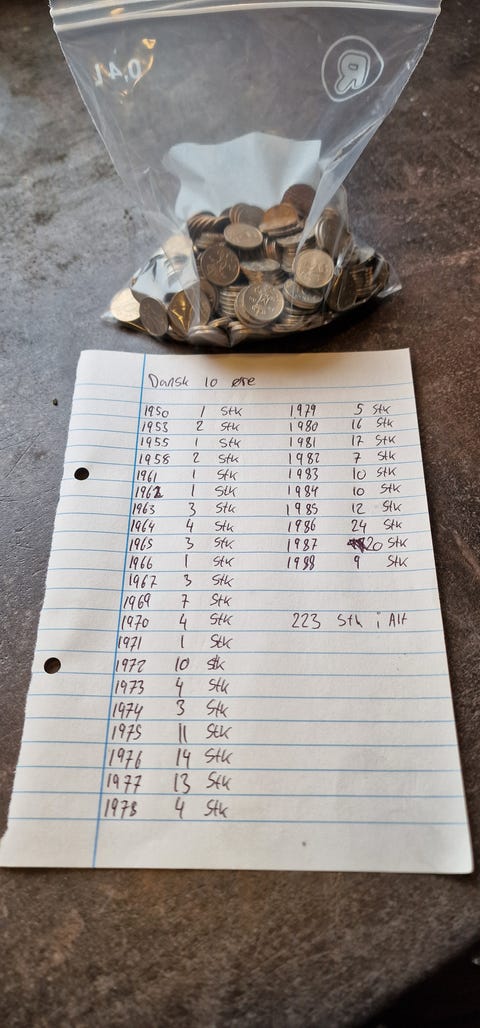 0,4L
R
Dansk 10 øre
1950 1 Stk 1979 5 Stk
1953 2 Stk 1980 16 Stk
1955 1 Stk 1981 17 Stk
1958 2 Stk 1982 7 Stk
1961 1 Stk 1983 10 Stk
1962 1 Stk 1984 10 Stk
1963 3 Stk 1985 12 Stk
1964 4 Stk 1986 24 Stk
1965 3 Stk 1987 20 Stk
1966 1 Stk 1988 9 Stk
1967 3 Stk
1969 7 Stk
1970 4 Stk 223 Stk i Alt
1971 1 Stk
1972 10 stk
1973 4 Stk
1974 3 Stk
1975 11 Stk
1976 14 Stk
1977 13 Stk
1978 4 Stk